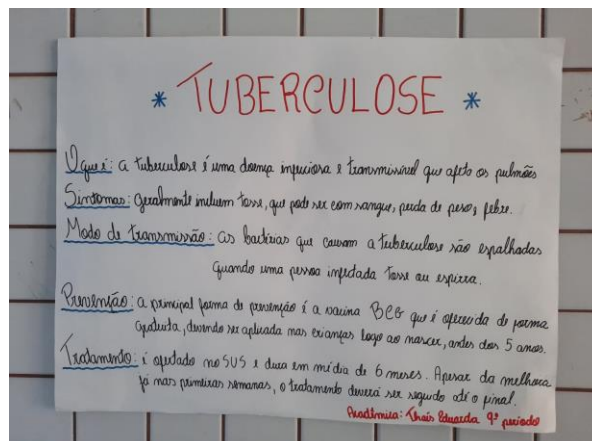 * TUBERCULOSE *
O que é: a tuberculose é uma doença infecciosa e transmissível que afeta os pulmões
Sintomas: Geralmente incluem tosse, que pode ser com sangue, perda de peso, febre.
Modo de transmissão: as bactérias que causam a tuberculose são espalhadas
quando uma pessoa infectada tosse ou espirra.
Prevenção: a principal forma de prevenção é a vacina BCG que é oferecida de forma
gratuita, devendo ser aplicada nas crianças logo ao nascer, antes dos 5 anos.
Tratamento: é ofertado no SUS e dura em média de 6 meses. Apesar da melhora
já nas primeiras semanas, o tratamento deverá ser seguido até o final.
Acadêmica: Thais Eduarda 9º período